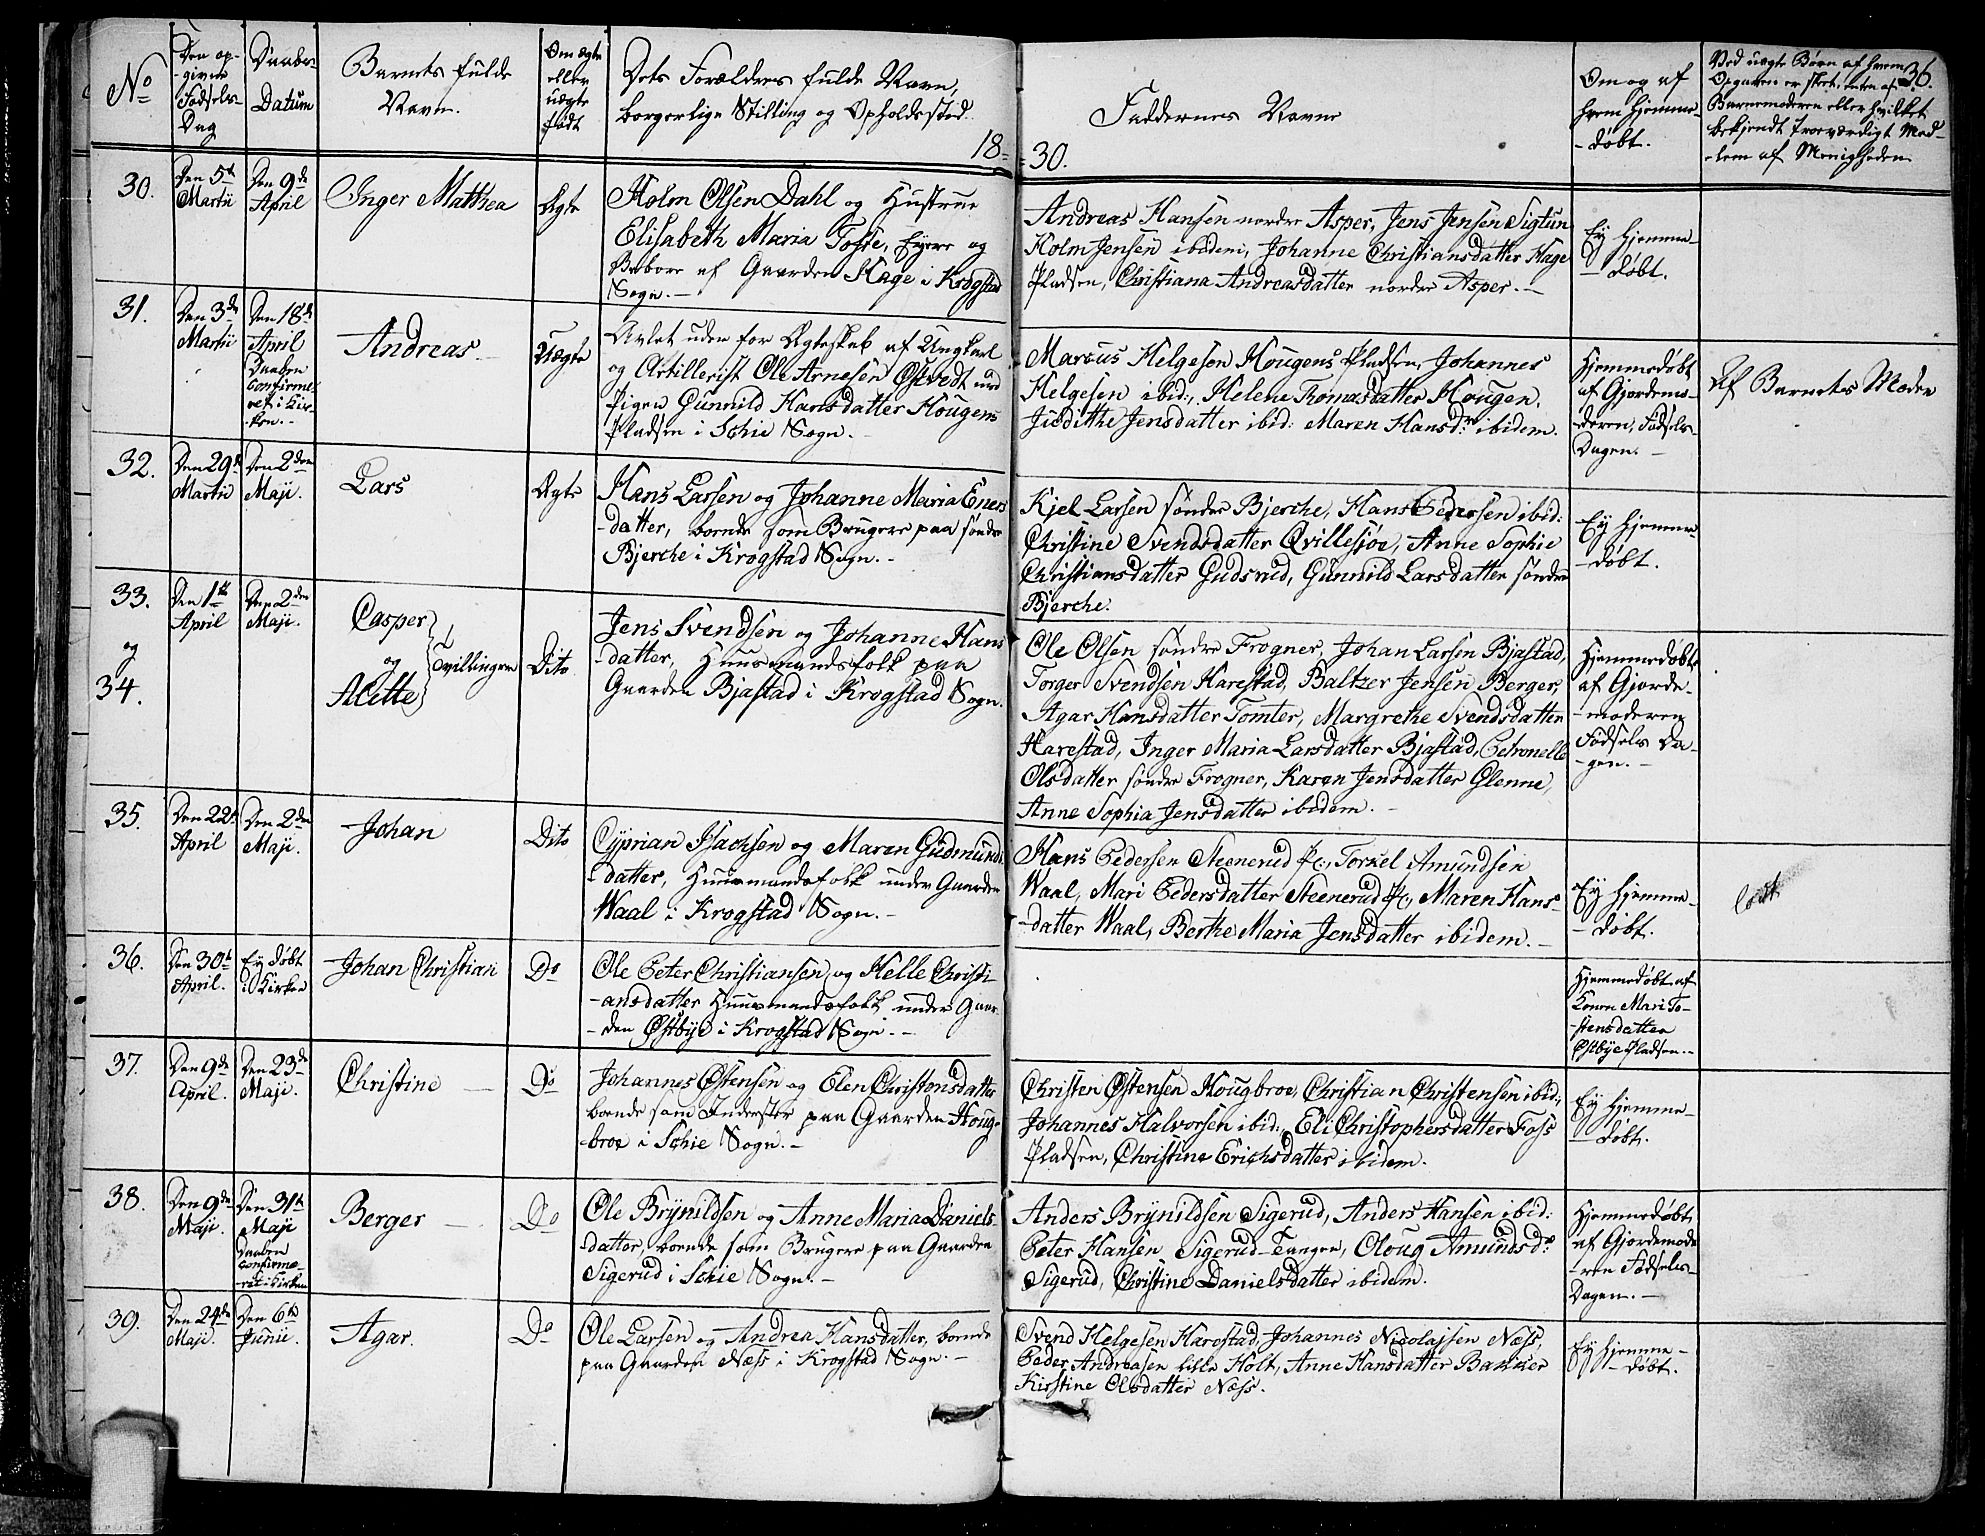 36.
No
Den op-
-givne
Fødsels-
Dag
Daabs-
Datum
Barnets fulde
Navn.
Om ægte
eller
uægte
født
Dets Forældres fulde Navn,
borgerlige Stilling og Opholdssted.
Faddernes Navne
Om og af
hvem hjemme-
-døbt.
Ved uægte Børn af hvem
Opgaven er skeet, enten af
Barnemoderen eller hvilket
bekjendt troeværdigt Med-
-lem af Menigheden
18-30.
30.
Den 5te
Martii
Den 9de
April
Inger Matthea
Ægte
Holm Olsen Dahl og Hustrue
Elisabeth Maria Tofte, Eyere og
Beboere af Gaarden Hage i Krogstad
Sogn.-
Andreas Hansen nordre Asper, Jens Jensen Sigtun
Holm Jensen ibidem, Johanne Christiansdatter Hage
Pladsen, Christiana Andreasdatter nordre Asper.-
Ey hjemme-
-døbt.
31.
Den 3de
Martii
Den 18de
April
Daaben
confirme-
ret i Kir-
ken.-
Andreas.
Uægte
Avlet uden for Ægteskab af Ungkarl
og Artillerist Ole Arnesen Østvedt med
Pigen Gunnild Hansdatter Hougens
Pladsen i Schie Sogn.-
Marcus Helgesen Hougens Pladsen, Johannes
Helgesen ibid:, Helene Tomasdatter Hougen.
Judithe Jensdatter ibid: Maren Hansdr ibidem.
Hjemmedøbt
af Gjordemo-
-deren, Fødsels-
Dagen.-
Af Barnets Moder
32.
Den 29de
Martii
Den 2den
Maji.
Lars
Ægte
Hans Larsen og Johanne Maria Eners
-datter, boende som Brugere paa søndre
Bjerche i Krogstad Sogn.-
Kjel Larsen søndre Bjerche, Hans Pedersen ibid:
Christine Svendsdatter Qvillesjøe, Anne Sophie
Christiansdatter Gudsrud, Gunnild Larsdatter søndre
Bjerche.
Ey hjemme-
-døbt.
33.
og
34.
Den 1ste
April
Den 2den
Maji.
Casper
og
Alette
Tvillinger
Dito
Jens Svendsen og Johanne Hans
-datter, Huusmandsfolk paa
Gaarden Bjastad i Krogstad Sogn.
Ole Olsen søndre Frogner, Johan Larsen Bjastad,
Torger Svendsen Harestad, Baltzer Jensen Berger,
Agar Hansdatter Tomter, Margrethe Svendsdatter
Harestad, Inger Maria Larsdatter Bjastad, Petronelle
Olsdatter søndre Frogner, Karen Jensdatter Glenne,
Anne Sophia Jensdatter ibidem.-
Hjemmedøbte
af Gjorde-
-moderen
Fødsels Da-
-gen.-
35.
Den 22de
April
Den 2den
Maji.
Johan
Dito
Cyprian Isachsen og Maren Gudmunds
-datter, Huusmandsfolk under Gaarden
Waal i Krogstad Sogn.-
Hans Pedersen Steenerud Pl:, Torkel Amundsen
Waal, Mari Pedersdatter Steenerud Pl:, Maren Hans-
-datter Waal, Berthe Maria Jensdatter ibidem.-
Ey hjemme-
-døbt.
36.
Den 30te
April.
Ey døbt
i Kirken
Johan Christian
Do
Ole Peter Christiansen og Helle Christi-
-ansdatter Huusmandsfolk under Gaar-
-den Østbye i Krogstad Sogn.-
Hjemmedøbt af
Konen Mari To-
stensdatter
Østbye Pladsen.-
37.
Den 9de
April.
Den 23de
Maji.
Christine
Do
Johannes Østensen og Elen Christensdatter
boende som Inderster paa Gaarden Houg-
broe i Schie Sogn.-
Christen Østensen Hougbroe, Christian Christensen ibid:,
Johannes Halvorsen ibid:, Eli Christophersdatter Foss
Pladsen, Christine Erichsdatter ibidem.
Ey hjemme-
-døbt.
38.
Den 9de
Maji.
Den 31te
Maji
Daaben
confirme-
-ret i Kirken
Berger
Do
Ole Brynildsen og Anne Maria Daniels-
-datter, boende som Brugere paa Gaarden
Sigerud i Schie Sogn.-
Anders Brynildsen Sigerud, Anders Hansen ibid:
Peter Hansen Sigerud-Tangen, Oloug Amundsdr
Sigerud, Christine Danielsdatter ibidem.
Hjemmedøbt,
af Gjordemode
-ren Fødsels-
Dagen.-
39.
Den 24de
Maji.
Den 6te
Junii.
Agar.
Do
Ole Larsen og Andrea Hansdatter, boende
paa Gaarden Næss i Krogstad Sogn.-
Svend Helgesen Harestad, Johannes Nicolajsen Næss,
Peder Andreasen lille Holt, Anne Hansdatter Bakker
Kirstine Olsdatter Næss.
Ey hjemme-
-døbt.